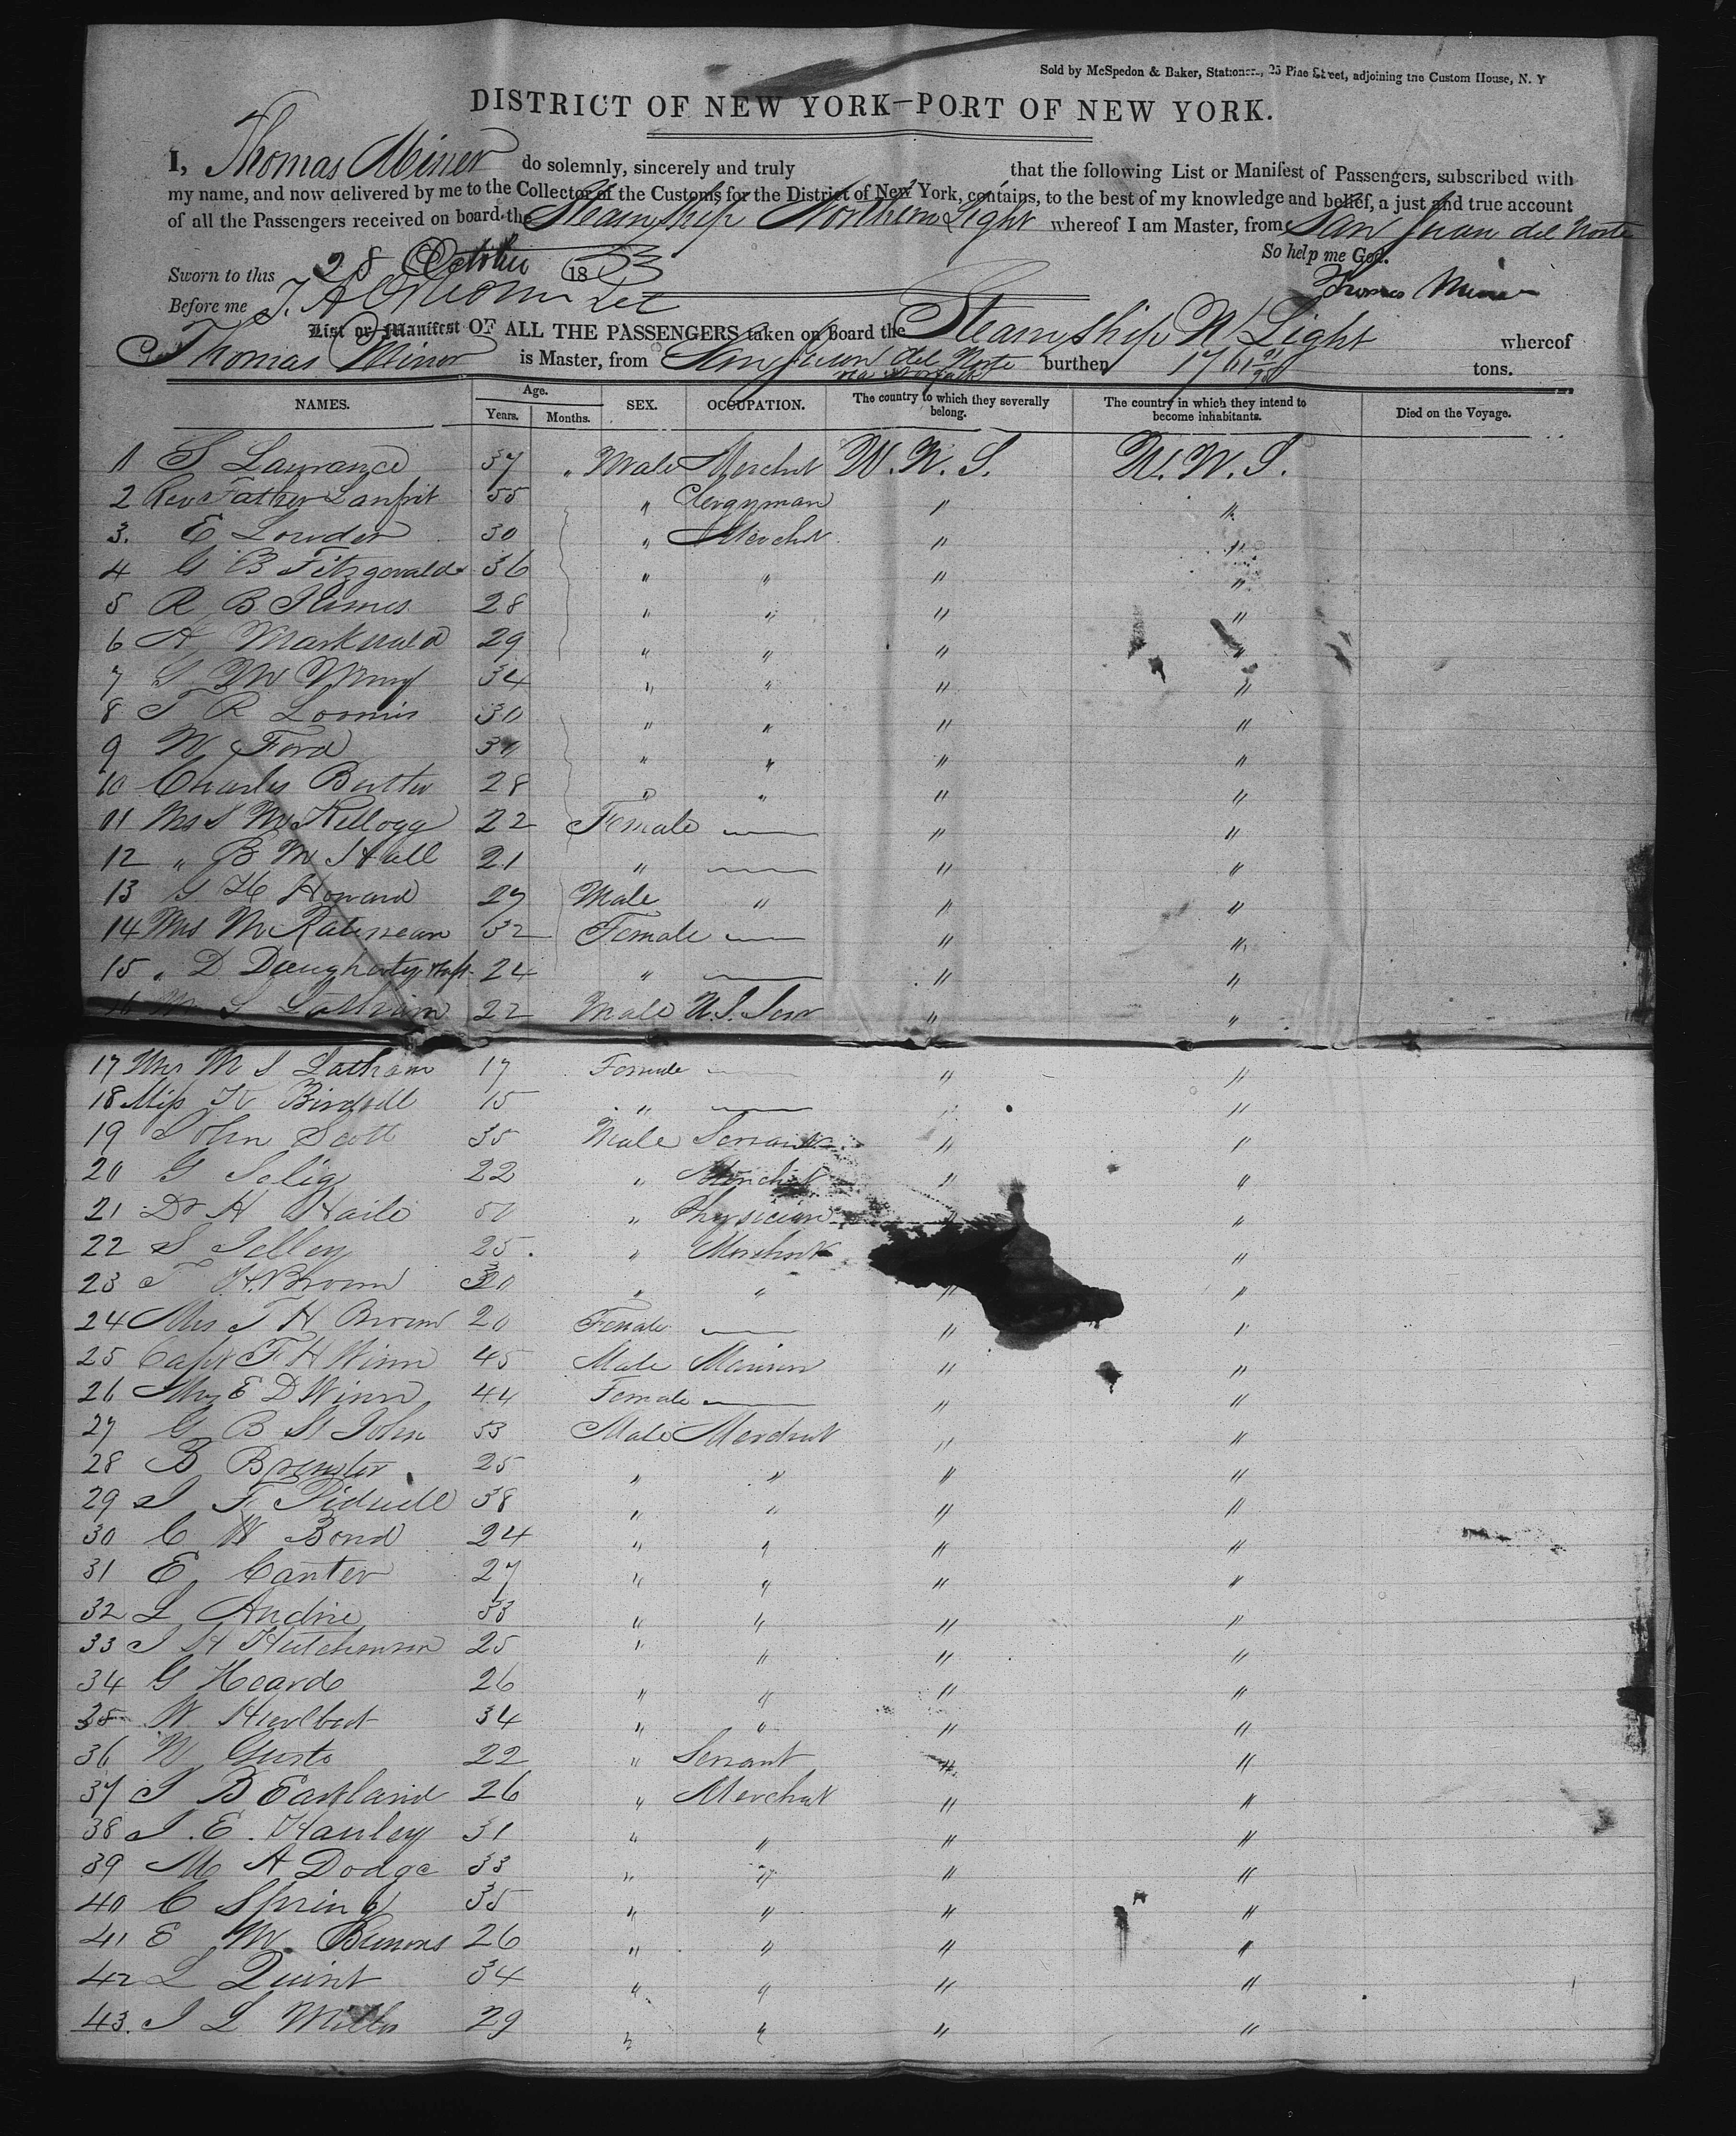 Sold by McSpedon & Baker, Stationers, 25 Pine Street, adjoining the Custom House, N. Y
DISTRICT OF NEW YORK—PORT OF NEW YORK.
I, Thomas Miner do solemnly, sincerely and truly that the following List or Manifest of Passengers, subscribed with
my name, and now delivered by me to the Collector of the Customs for the District of New York, contains, to the best of my knowledge and belief, a just and true account
of all the Passengers received on board the Steamship Northern Light whereof I am Master, from San Juan del Norte
So help me God.
Sworn to this 28 October 1853
Thomas Miner
Before me
List or Manifest OF ALL THE PASSENGERS taken on board the Steamship N Light whereof
Thomas Miner is Master, from San Juan del Norte via Norfolk burthen 1761 91/95 tons.
NAMES. Age. Years. Months. SEX. OCCUPATION. The country to which they severally belong. The country in which they intend to become inhabitants. Died on the Voyage.
1 S Laurance 37 " Male Merchnt U. N. S. U. N. S.
2 Rev Father 55 " Clergyman " "
3. E Lowder 30 " Merchnt " "
4 G B Fitzgerald 36 " " " "
5 R B 28 " " " "
6 A Markwald 29 " " " "
7 S W 34 " " " "
8 T R Loomis 30 " " " "
9 W Ford " " " "
10 Charles Butter 28 " " " "
11 Mrs S M Kellogg 22 Female — " "
12 " B M Hall 21 " — " "
13 G H Howard 27 Male " " "
14 Mrs M 32 Female — " "
15 " D Daugherty 24 " — " "
16 M S Latham 22 Male U.S. " "
17 Mrs M S Latham 17 Female — " "
18 Miss K Birdsell 15 " — " "
19 John Scott 35 Male Servant " "
20 G Selig 22 " Merchnt " "
21 Dr H Haile 50 " Physician "
22 S Jelley 25. " Merchnt "
23 T H. Brown 30 " " " "
24 Mrs T H Brown 20 Female — " "
25 Capt F H Winn 45 Male Mariner " "
26 Mrs E D Winn 44 Female — " "
27 G B St John 53 Male Merchnt " "
28 B Brewster 25 " " " "
29 J F Pidwell 38 " " " "
30 C W Bond 24 " " " "
31 E Canter 27 " " " "
32 L Andrie 33 " " " "
33 J H Hutchinson 25 " " " "
34 G Heard 26 " " " "
35 W Hurlbut 34 " " " "
36 W Gusto 22 " Servant " "
37 J B Eastland 26 " Merchnt " "
38 J. E. Hanley 31 " " " "
39 M A Dodge 33 " " " "
40 C Spring 35 " " " "
41 E M 26 " " " "
42 L Quint 34 " " " "
43. J L Miller 29 " " " "